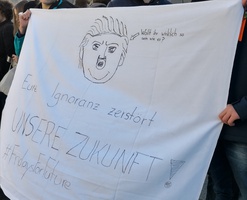 Willst du wirklich so
sein wie er?
Eure Ignoranz zerstört
UNSERE ZUKUNFT!
#FridaysForFuture